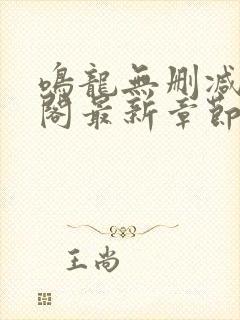 鳴龍無刪減
閣最新章節
王尚